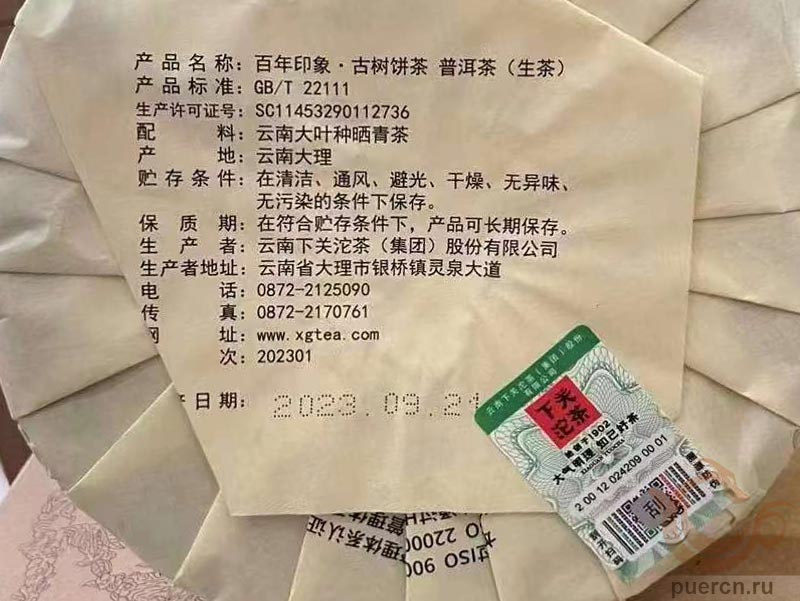 产品名称：百年印象·古树饼茶 普洱茶（生茶）
产品标准：GB/T 22111
生产许可证号：SC11453290112736
配 料：云南大叶种晒青茶
产 地：云南大理
贮存条件：在清洁、通风、避光、干燥、无异味、
无污染的条件下保存。
保 质 期：在符合贮存条件下，产品可长期保存。
生 产 者：云南下关沱茶（集团）股份有限公司
生产者地址：云南省大理市银桥镇灵泉大道
电 话：0872-2125090
传 真：0872-2170761
网 址：www.xgtea.com
次：202301
产日期：2023.09.21
云南下关沱茶（集团）股份
有限公司
下关
沱茶
始创于1902
大气明理 知己好茶
XIAGUAN TUOCHA
2 00 12 024209 00 01
刮
理体系认证
管理体
通过H
O 22000
过ISO 900
puercn.ru